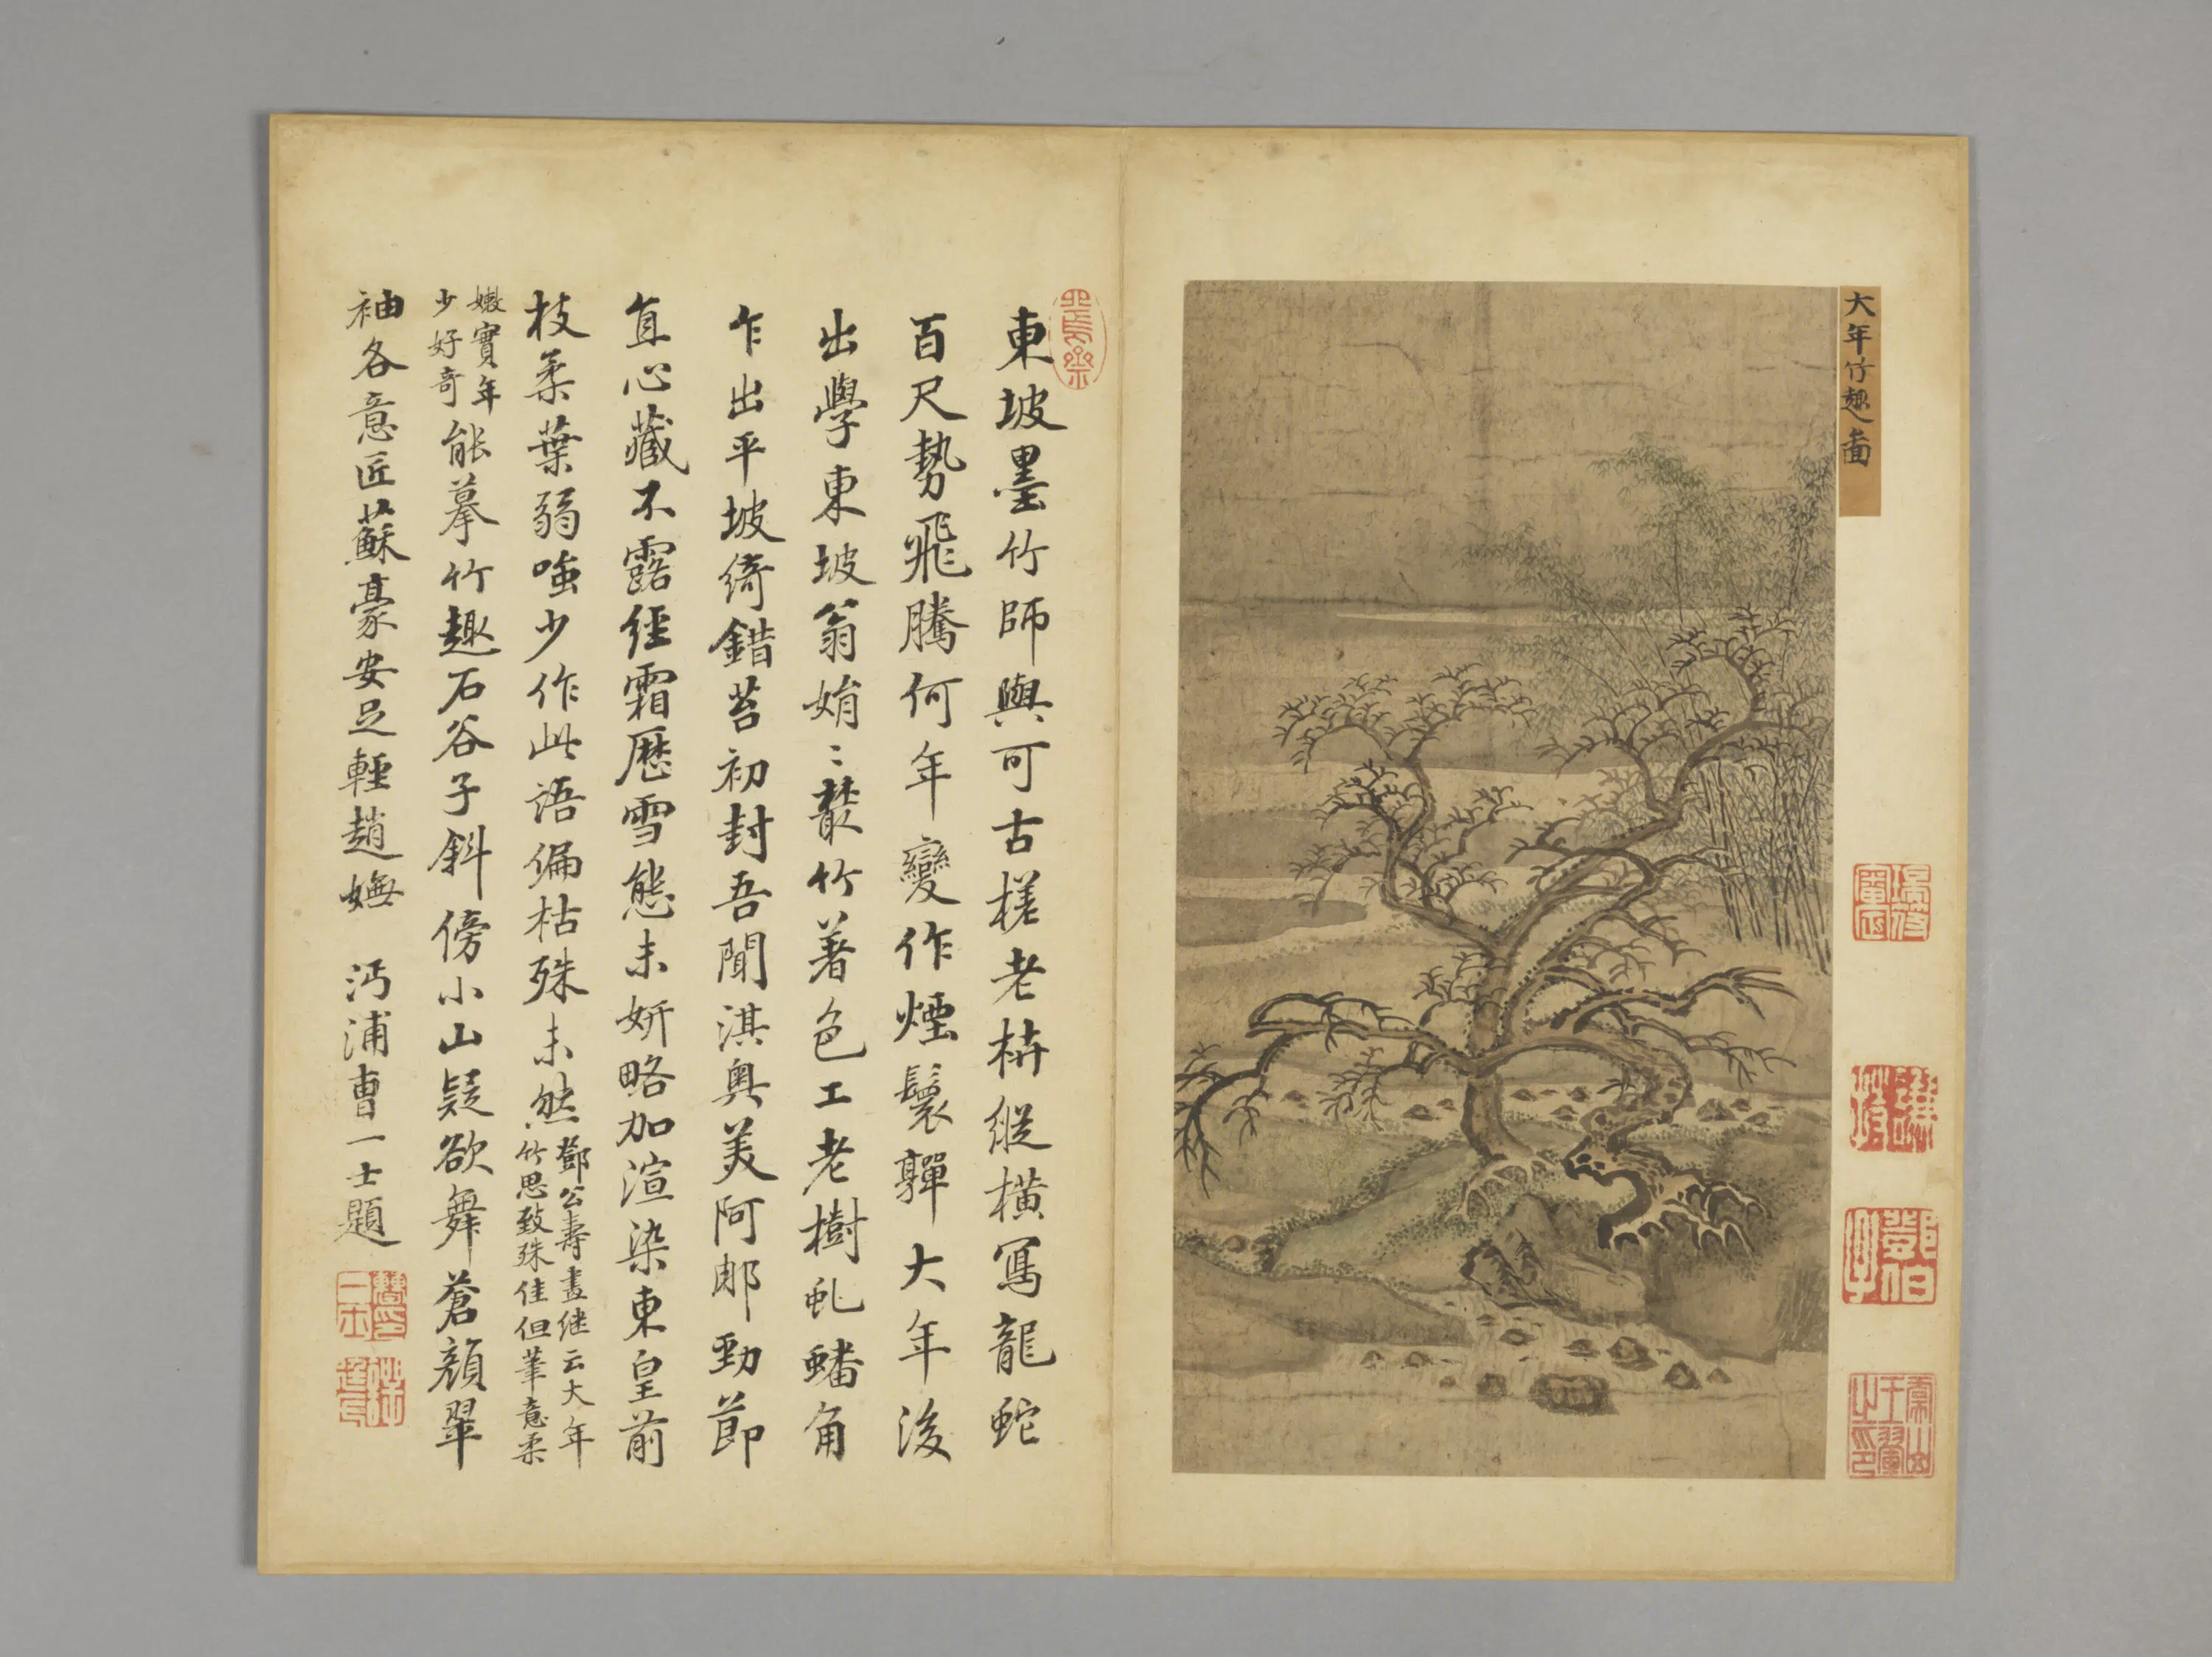 大年竹趣圖
東坡墨竹師與可古槎老枿縱橫寫龍蛇
百尺勢飛騰何年變作煙鬟嚲大年後
出學東坡翁娟〻叢竹著色工老樹虬蟠角
乍出平坡綺錯苔初封吾聞淇奧美阿那勁節
直心藏不露經霜歷雪態未妍略加渲染東皇前
枝柔葉弱嗤少作此語偏枯殊未然鄧公壽畫継云大年
竹思致殊佳但筆意柔
嫩實年
少好奇能摹竹趣石谷子斜傍小山疑欲舞蒼顏翠
袖各意匠蘇豪安足輕趙嫵 沔浦曹一士題